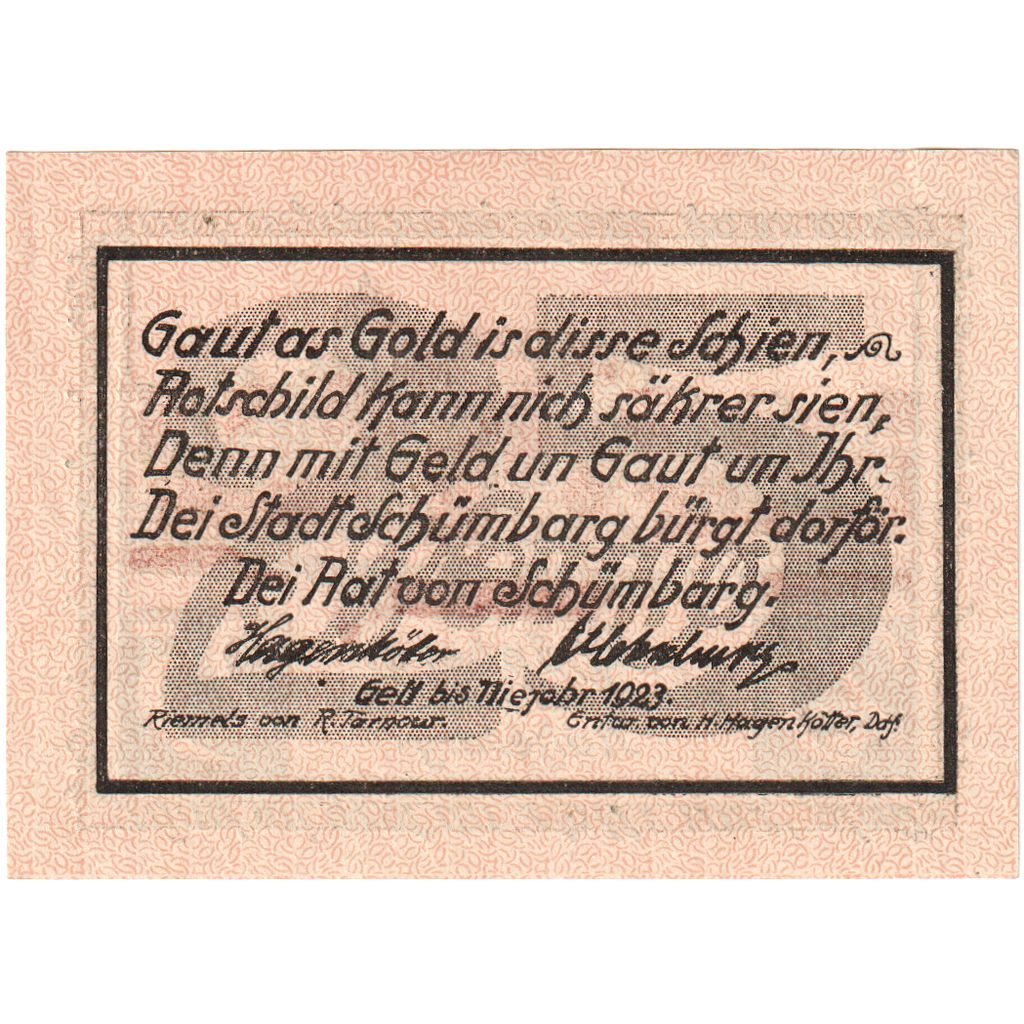 Gaut as Gold is disse Schien,
Rotschild kann nich säkrer sien,
Denn mit Geld un Gaut un Ihr.
Dei Stadt Schümbarg bürgt dorför.
Dei Rat von Schümbarg.
Hagenkötter
Gelt bis Niejohr 1923.
Riemels von R. Tarnour. Entw. von H. Hagenkötter, Daf.
25